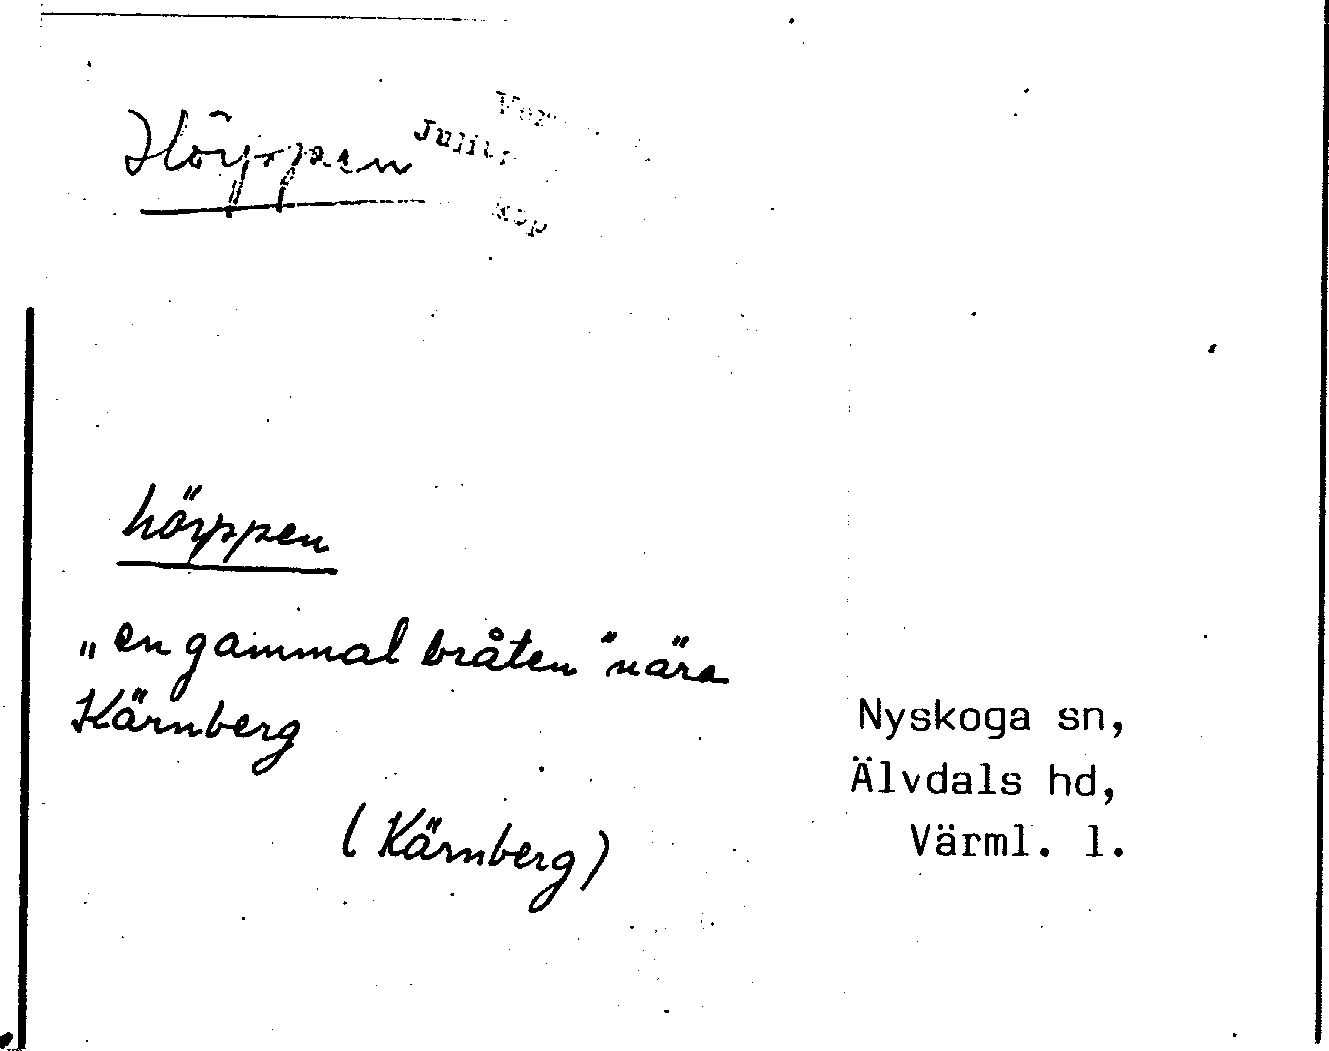 Hörppen
hörppen
„en gammal bråten" nära
Kärnberg
(Kärnberg)
Nyskoga sn,
Älvdals hd,
Värml. l.